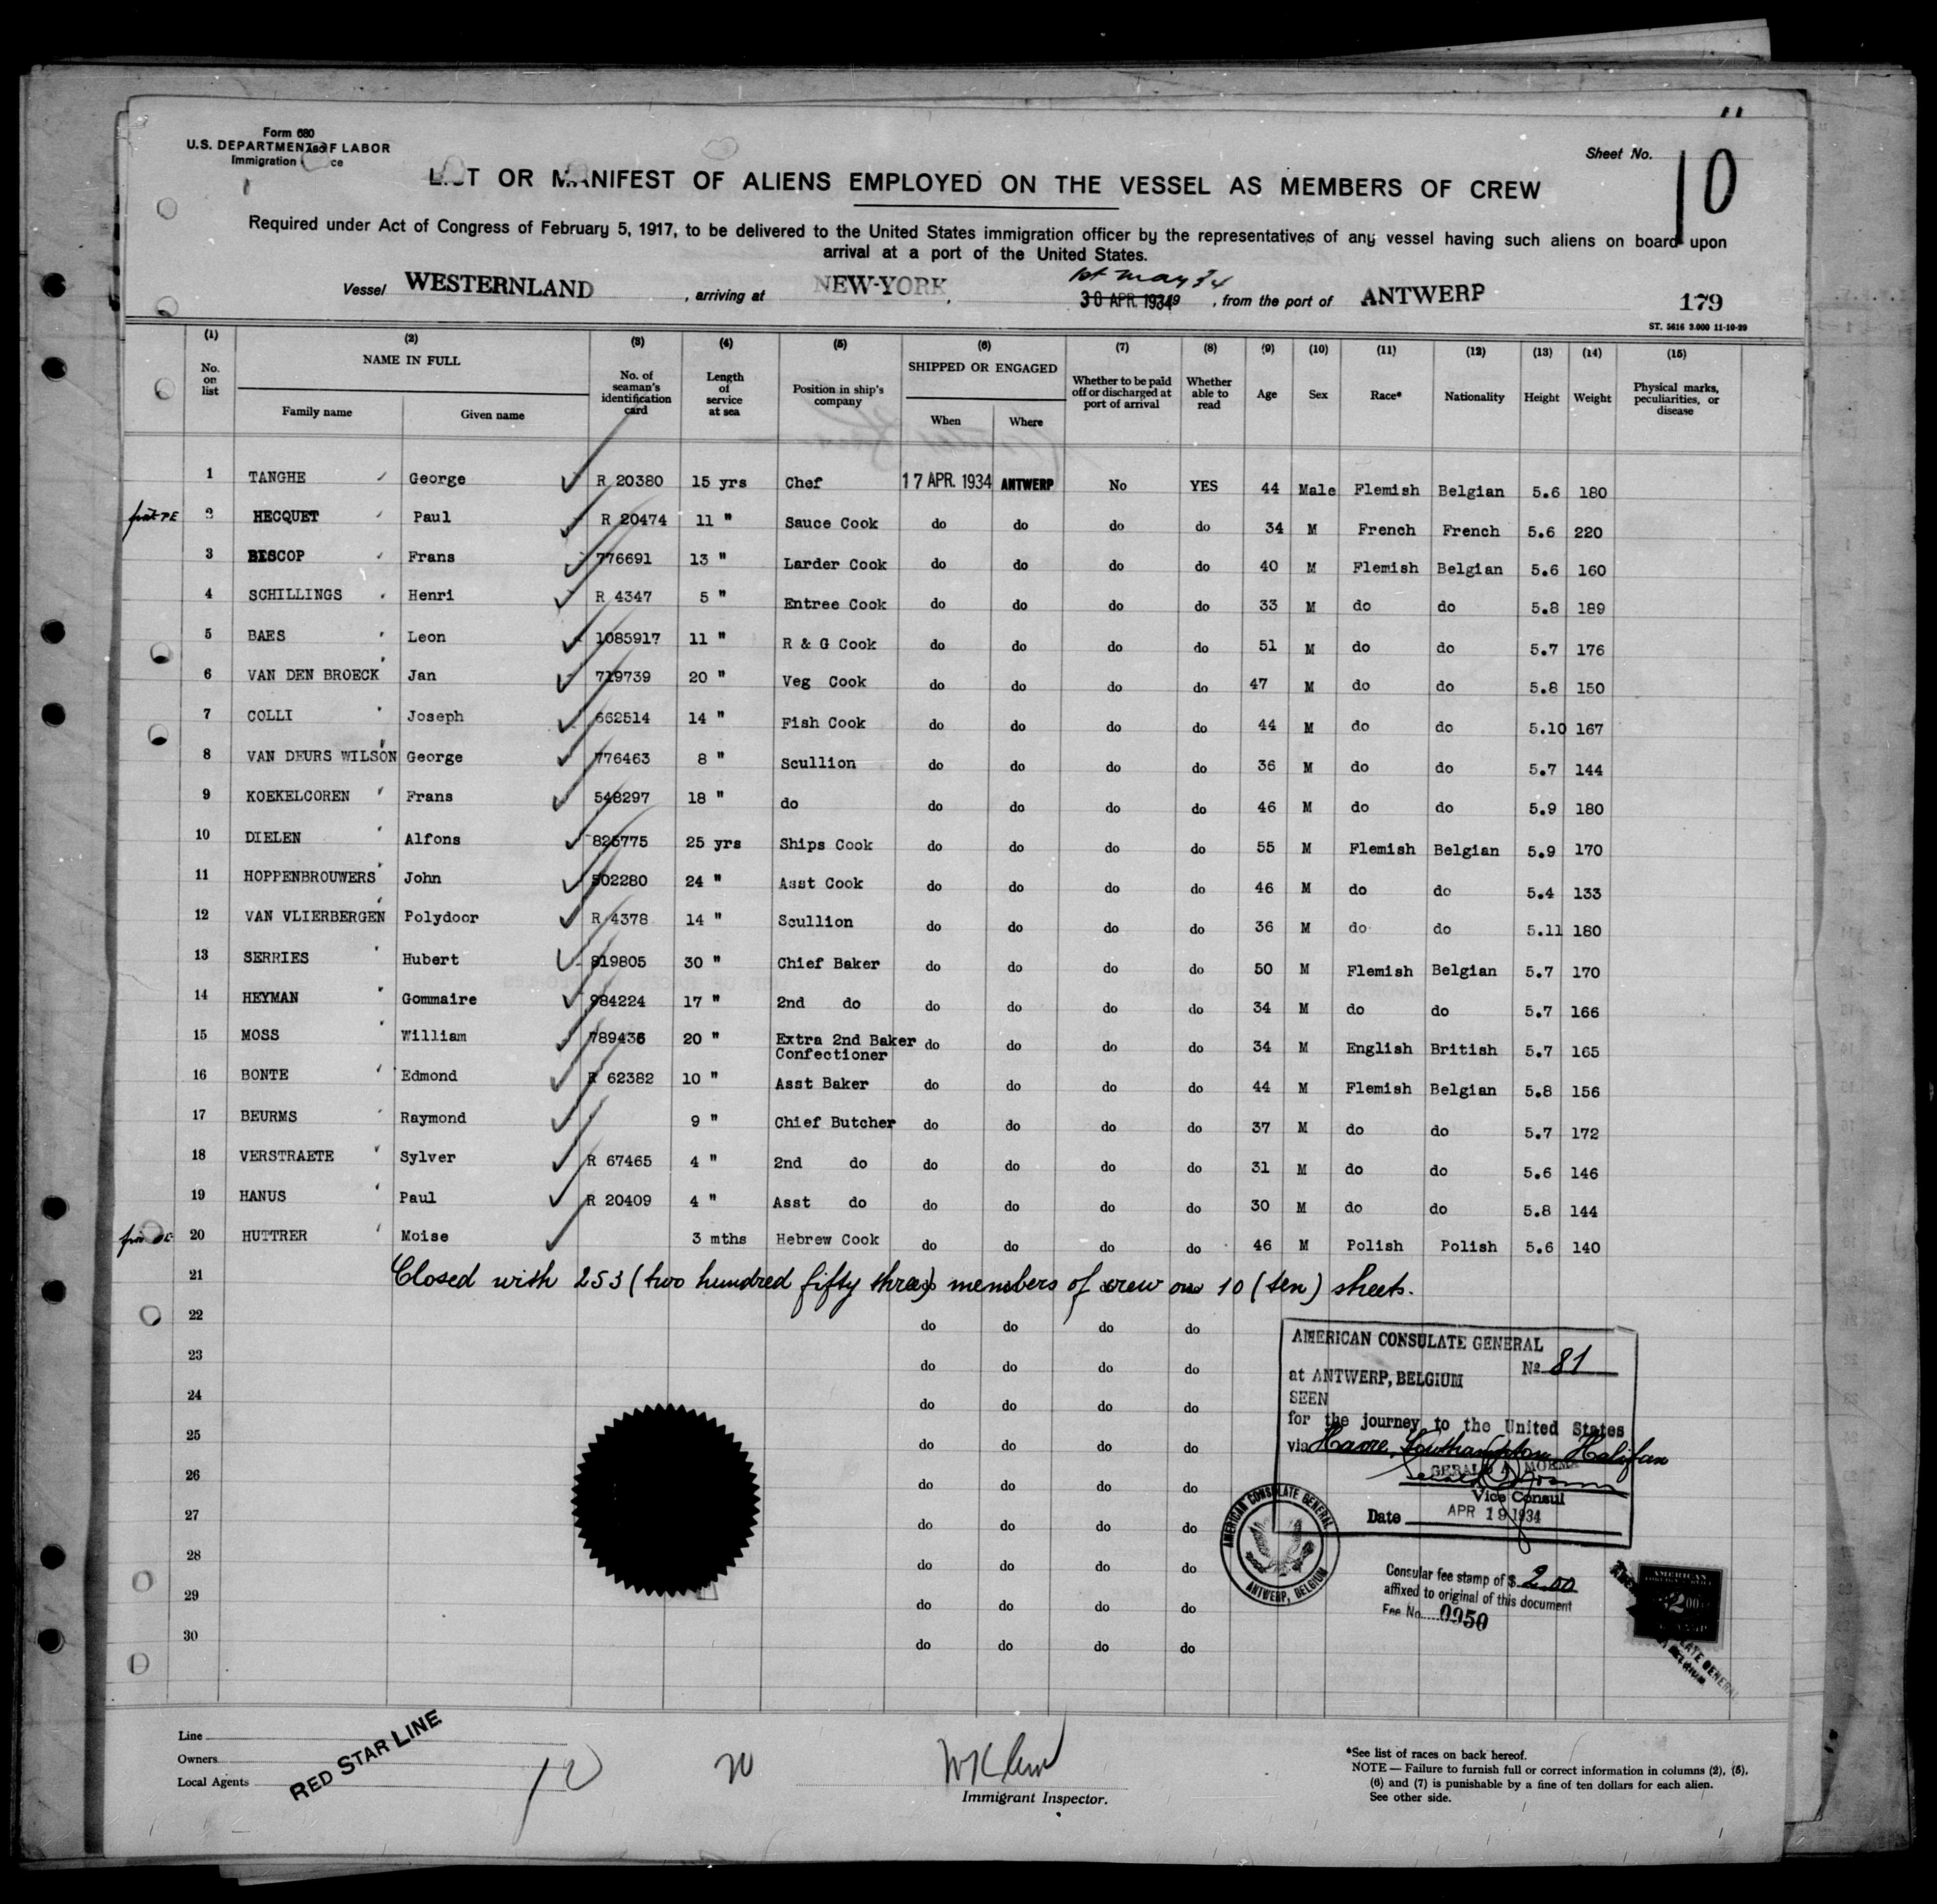 Form 680
U.S. DEPARTMENT OF LABOR
Immigration
Sheet No. 10
LIST OR MANIFEST OF ALIENS EMPLOYED ON THE VESSEL AS MEMBERS OF CREW
Required under Act of Congress of February 5, 1917, to be delivered to the United States immigration officer by the representatives of any vessel having such aliens on board upon
arrival at a port of the United States.
1st May 34
Vessel WESTERNLAND , arriving at NEW-YORK , 30 APR. 1934 , from the port of ANTWERP 179
ST. 5616 3.000 11-10-29
(1) (2) (3) (4) (5) (6) (7) (8) (9) (10) (11) (12) (13) (14) (15)
No. on list NAME IN FULL Family name Given name No. of seaman's identification card Length of service at sea Position in ship's company SHIPPED OR ENGAGED When Where Whether to be paid off or discharged at port of arrival Whether able to read Age Sex Race* Nationality Height Weight Physical marks, peculiarities, or disease
1 TANGHE George R 20380 15 yrs Chef 17 APR. 1934 ANTWERP No YES 44 Male Flemish Belgian 5.6 180
2 HECQUET Paul R 20474 11 " Sauce Cook do do do do 34 M French French 5.6 220
3 BESCOP Frans 776691 13 " Larder Cook do do do do 40 M Flemish Belgian 5.6 160
4 SCHILLINGS Henri R 4347 5 " Entree Cook do do do do 33 M do do 5.8 189
5 BAES Leon 1085917 11 " R & G Cook do do do do 51 M do do 5.7 176
6 VAN DEN BROECK Jan 719739 20 " Veg Cook do do do do 47 M do do 5.8 150
7 COLLI Joseph 662514 14 " Fish Cook do do do do 44 M do do 5.10 167
8 VAN DEURS WILSON George 776463 8 " Scullion do do do do 36 M do do 5.7 144
9 KOEKELCOREN Frans 548297 18 " do do do do do 46 M do do 5.9 180
10 DIELEN Alfons 825775 25 yrs Ships Cook do do do do 55 M Flemish Belgian 5.9 170
11 HOPPENBROUWERS John 502280 24 " Asst Cook do do do do 46 M do do 5.4 133
12 VAN VLIERBERGEN Polydoor R 4378 14 " Scullion do do do do 36 M do do 5.11 180
13 SERRIES Hubert 819805 30 " Chief Baker do do do do 50 M Flemish Belgian 5.7 170
14 HEYMAN Gommaire 984224 17 " 2nd do do do do do 34 M do do 5.7 166
15 MOSS William 789436 20 " Extra 2nd Baker Confectioner do do do do 34 M English British 5.7 165
16 BONTE Edmond R 62382 10 " Asst Baker do do do do 44 M Flemish Belgian 5.8 156
17 BEURMS Raymond 9 " Chief Butcher do do do do 37 M do do 5.7 172
18 VERSTRAETE Sylver R 67465 4 " 2nd do do do do do 31 M do do 5.6 146
19 HANUS Paul R 20409 4 " Asst do do do do do 30 M do do 5.8 144
20 HUTTRER Moise 3 mths Hebrew Cook do do do do 46 M Polish Polish 5.6 140
21 Closed with 253 (two hundred fifty three) members of crew on 10 (ten) sheets.
22 do do do do
23 do do do do
24 do do do do
25 do do do do
26 do do do do
27 do do do do
28 do do do do
29 do do do do
30 do do do do
AMERICAN CONSULATE GENERAL
No 81
at ANTWERP, BELGIUM
SEEN
for the journey to the United States
via Havre, Southampton, Halifax
GERALD A. MOKMA
Vice Consul
Date APR 19 1934
AMERICAN CONSULATE GENERAL ANTWERP, BELGIUM
Consular fee stamp of $ 2.00
affixed to original of this document
Fee No. 0950
AMERICAN
2.00
Line
Owners
Local Agents
RED STAR LINE
Immigrant Inspector.
*See list of races on back hereof.
NOTE — Failure to furnish full or correct information in columns (2), (5),
(6) and (7) is punishable by a fine of ten dollars for each alien.
See other side.